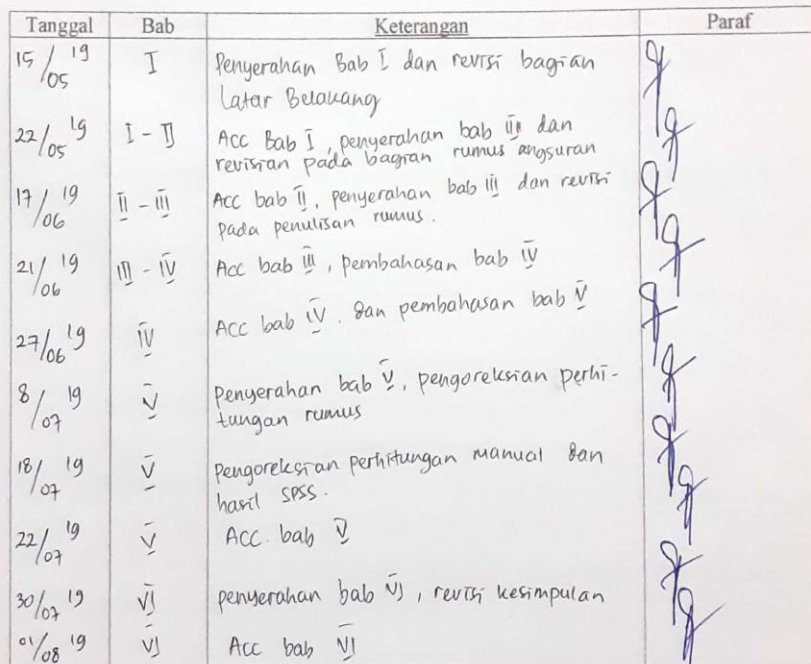 Tanggal Bab Keterangan Paraf
15/05 19 I Penyerahan Bab I dan revisi bagian
Latar Belakang
22/05 19 I - II Acc Bab I, penyerahan bab III dan
revisian pada bagian rumus angsuran
17/06 19 II - III Acc bab II, penyerahan bab III dan revisi
pada penulisan rumus.
21/06 19 III - IV Acc bab III, pembahasan bab IV
27/06 19 IV Acc bab IV. dan pembahasan bab V
8/07 19 V Penyerahan bab V, pengoreksian perhi-
tungan rumus
18/07 19 V pengoreksian perhitungan manual dan
hasil SPSS.
22/07 19 V Acc. bab V
30/07 19 VI penyerahan bab VI, revisi kesimpulan
01/08 19 VI Acc bab VI